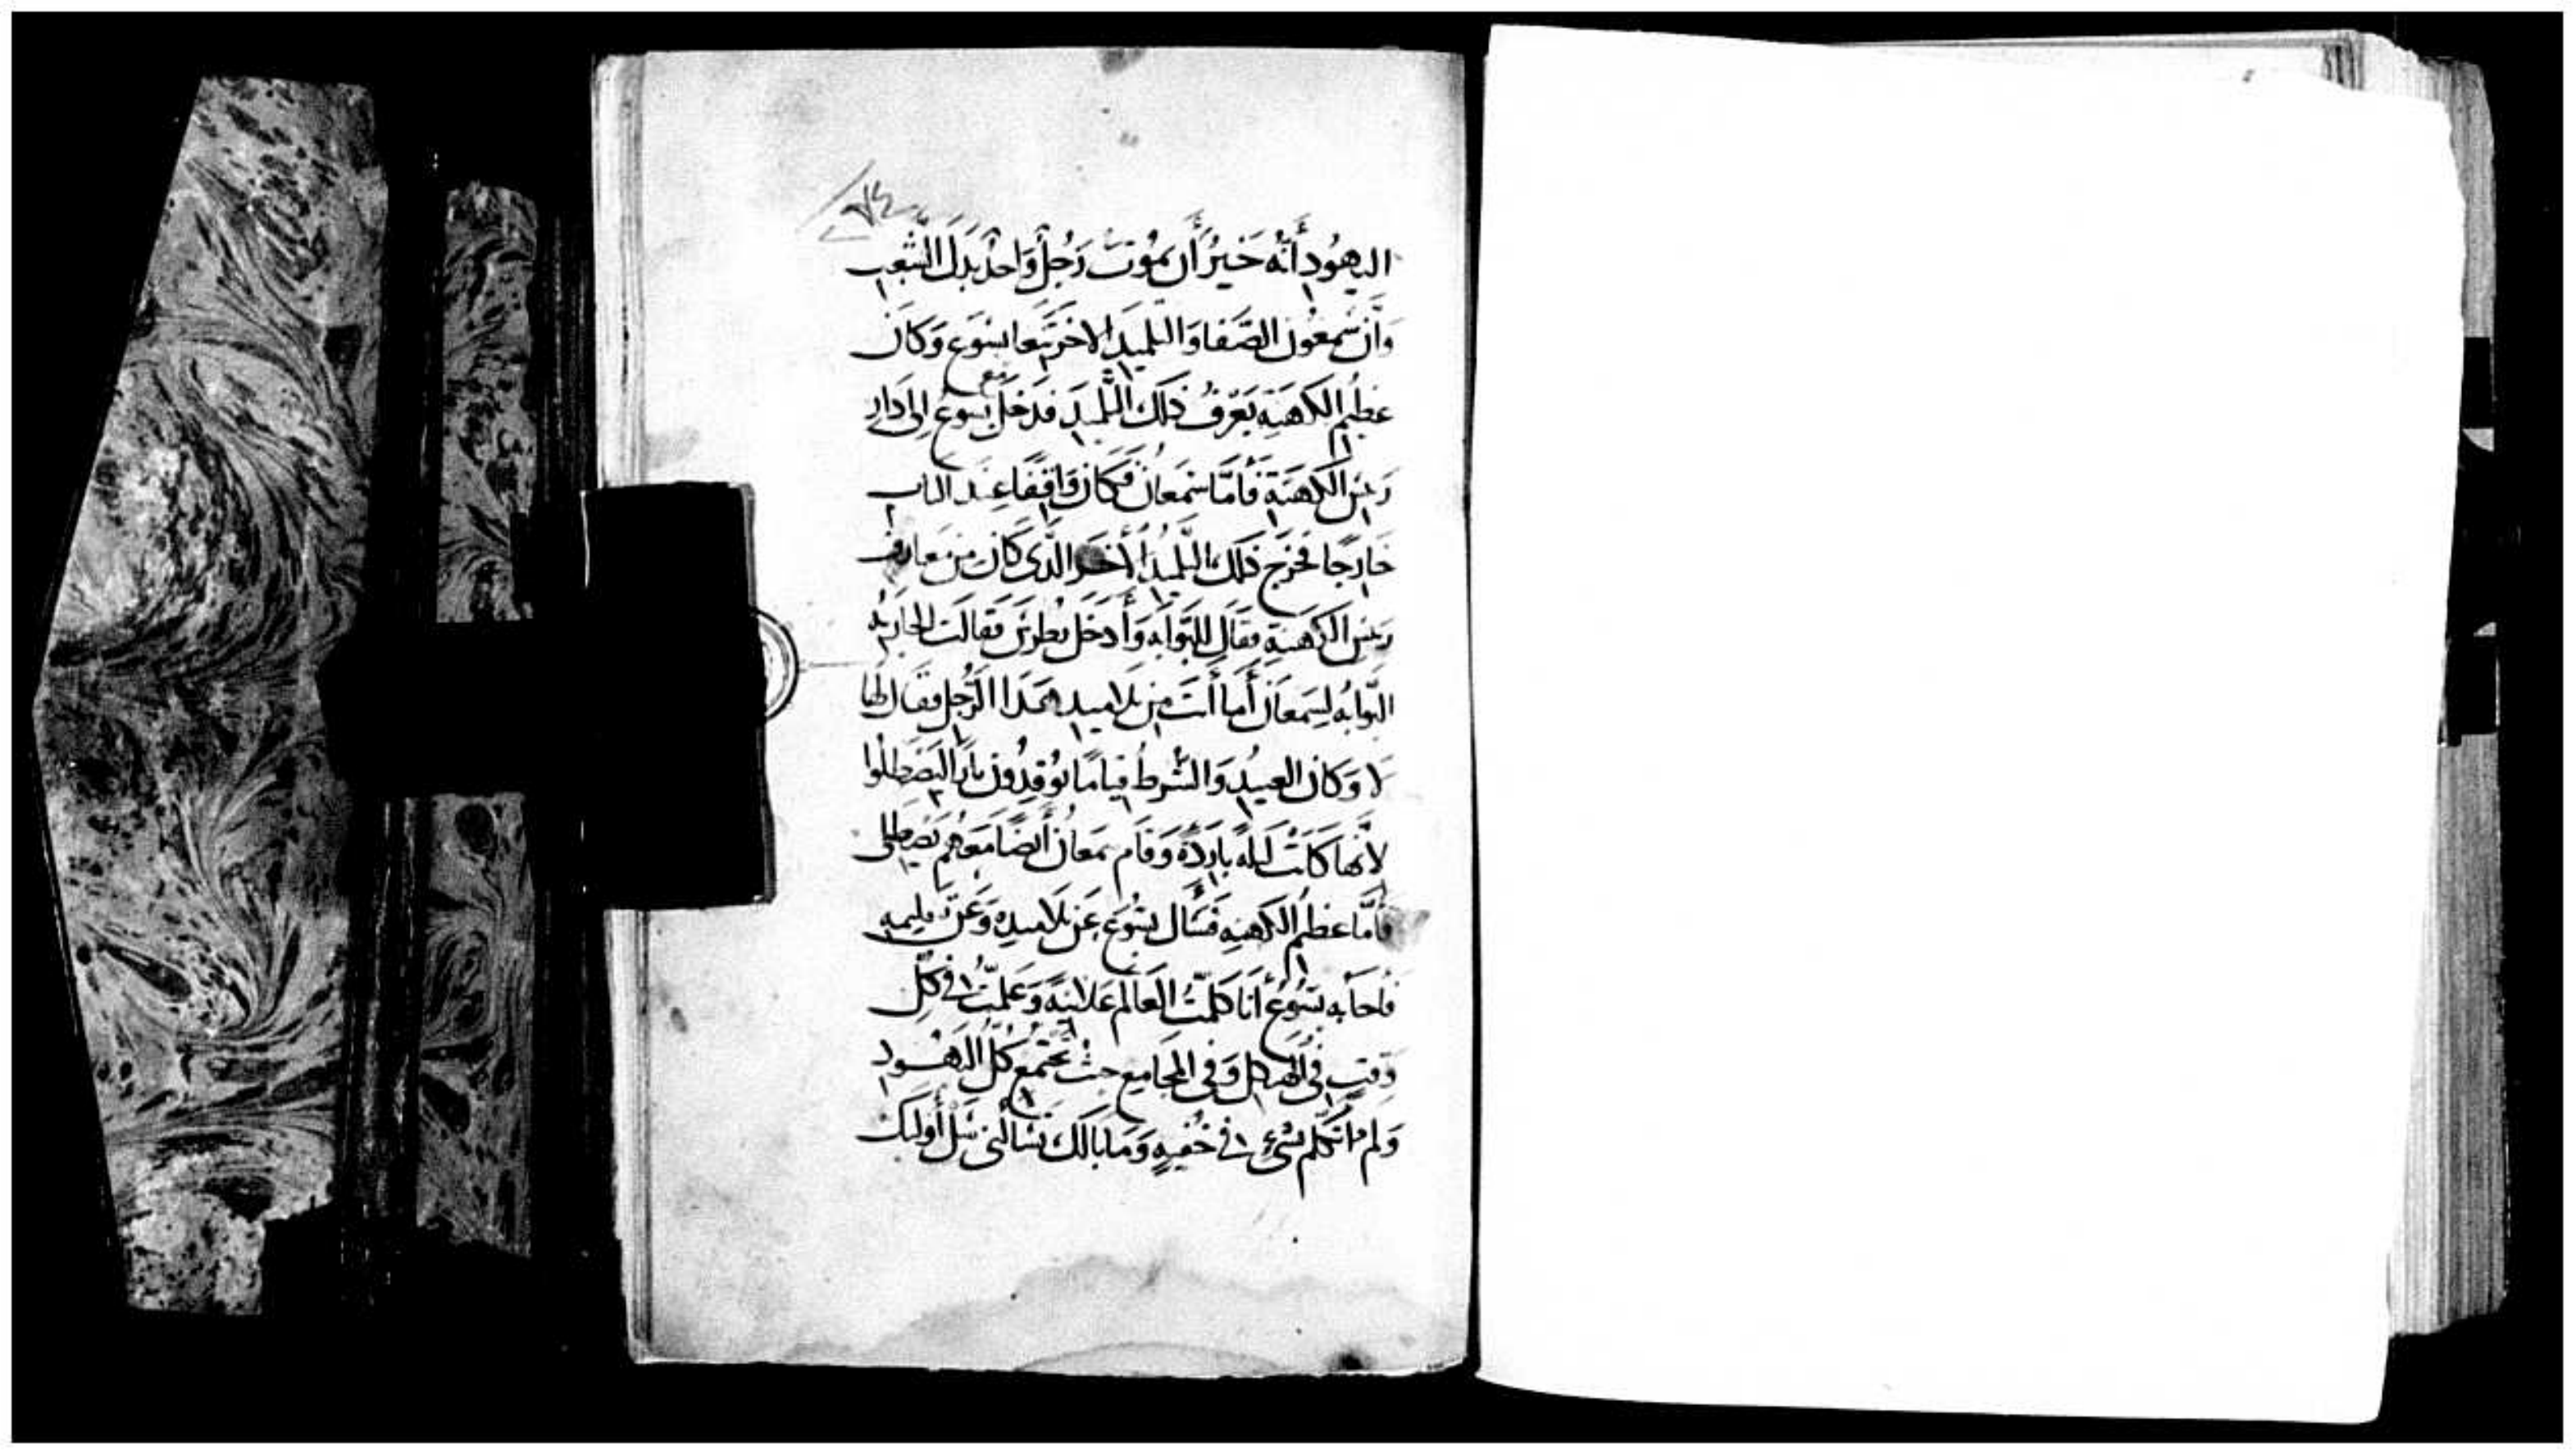 اليهود أنّه خير أن يموت رجل واحد بدل الشعب
وأن سمعون الصفا والتلميد الاخر تبعا يسوع وكان
عظيم الكهنة يعرف ذلك التلميد فدخل مع يسوع إلى دار
رئيس الكهنة فأما سمعان فكان واقفا عند الباب
خارجا فخرج ذلك التلميد الأخر الذي كان من معارف
رئيس الكهنة فقال للبوابه وأدخل بطرس فقالت الجاريه
البوابه لسمعان أما أنت من تلاميد هدا الرجل فقال لها
لا وكان العبيد والشرط قياما يوقدون نارا ليصطلوا
لأنها كانت ليله بارده وقام سمعان أيضا معهم يصطلي
فأما عظيم الكهنه فسأل يسوع عن تلاميده وعن تعليمه
فاجابه يسوع أنا كلمت العالم علانية وعلمت في كل
وقت في الهيكل وفي المجامع حيث يجتمع كل اليهود
ولم اتكلم بشيء في خفيه وما بالك تسألني سل أوليك